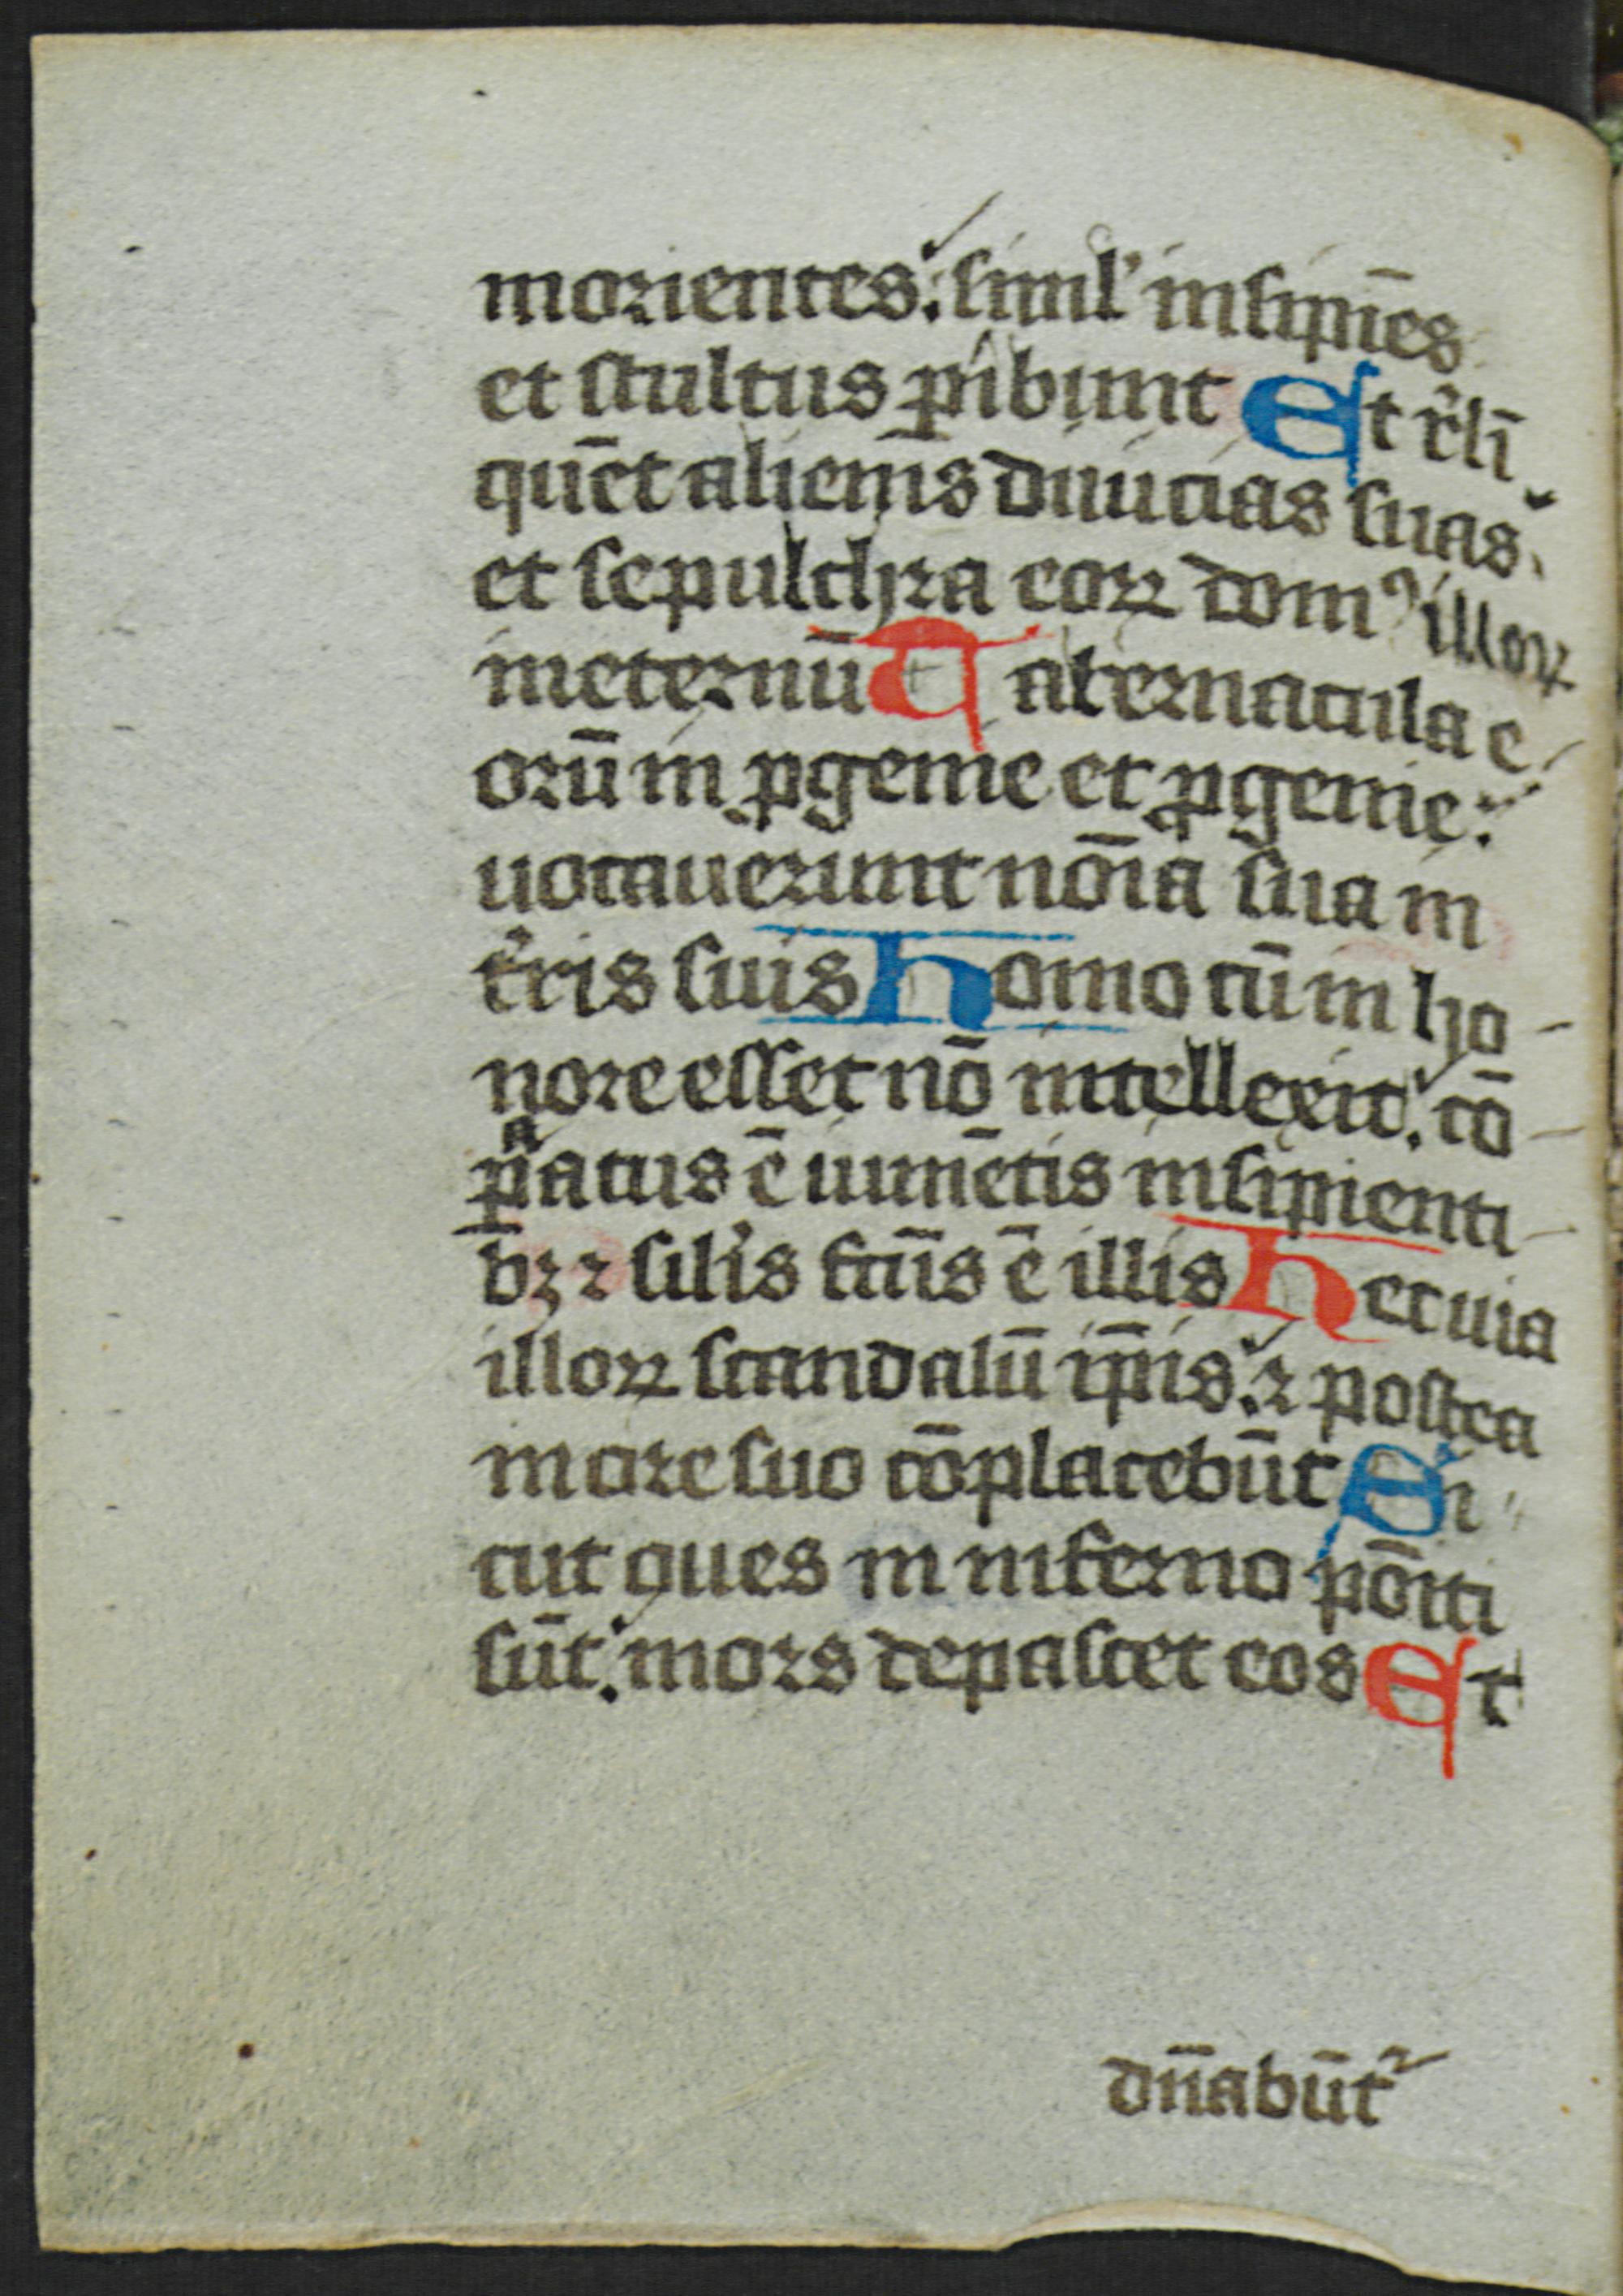 morientes. siml' insipiēs
et stultus ꝑibunt Et r̓li
quēt alienis̄ diuicias suas.
et sepulchra eoꝝ domꝰ illoꝝ
ineternū Tabernacula e
orū in ꝓgenie et ꝓgenie.
uocauerunt noīa sua in
t̓ris suis Homo cū in ho-
nore esset nō intellexit. cō-
ꝑͣatus ē iumētis insipienti-
bꝫ ⁊ sil̓is fc̄us ē illis Hec uia
illoꝝ scandalū ip̄is. ⁊ postea
in ore suo cōplacebūt Si
cut oues in inferno pōiti
sūt. mors depascet eos Et
dn̄abūt᷑